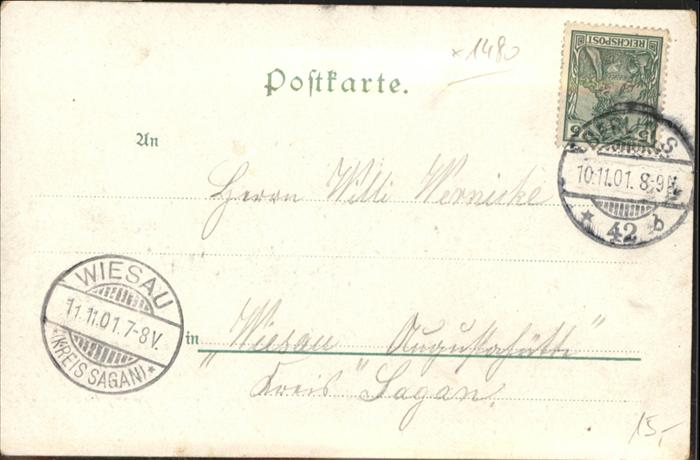 ×1480
Postkarte.
REICHSPOST
5 5
BERLIN S
10.11.01. 8-9 N.
* 42 b
An
Herrn Willi Wernicke
WIESAU
11.11.01. 7-8V.
*(KREIS SAGAN)*
in "Wiesau Augustahütte"
Kreis Sagan.
15,-